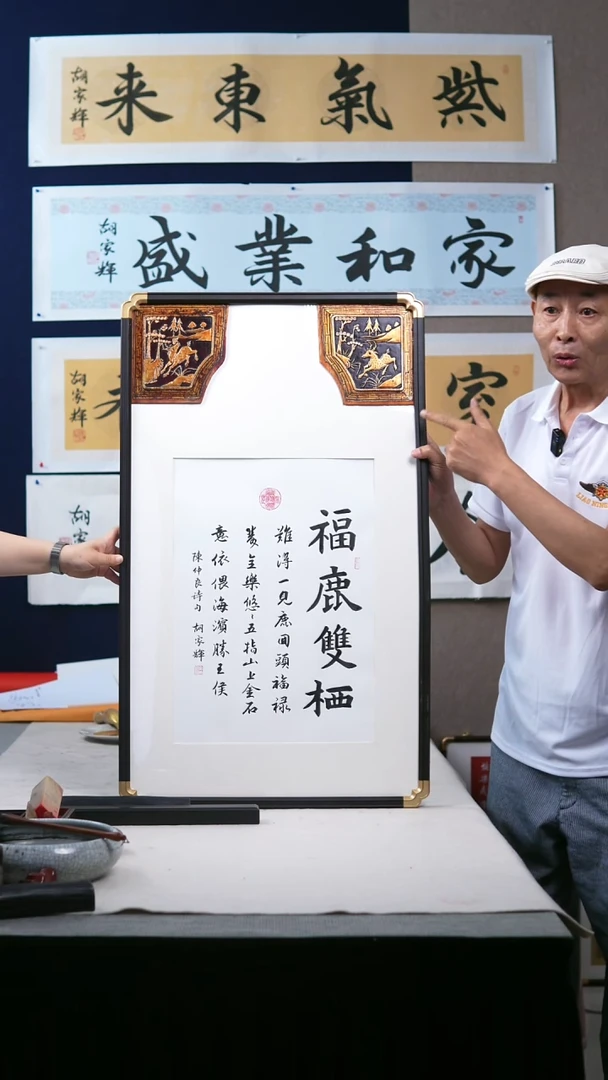 紫氣東来
胡家輝
家和業盛
胡家輝
家
胡家輝
福鹿雙栖
難得一見鹿回頭福禄
雙全樂悠々五指山上金石
意依偎海濱勝王侯
陳仲良诗句 胡家輝